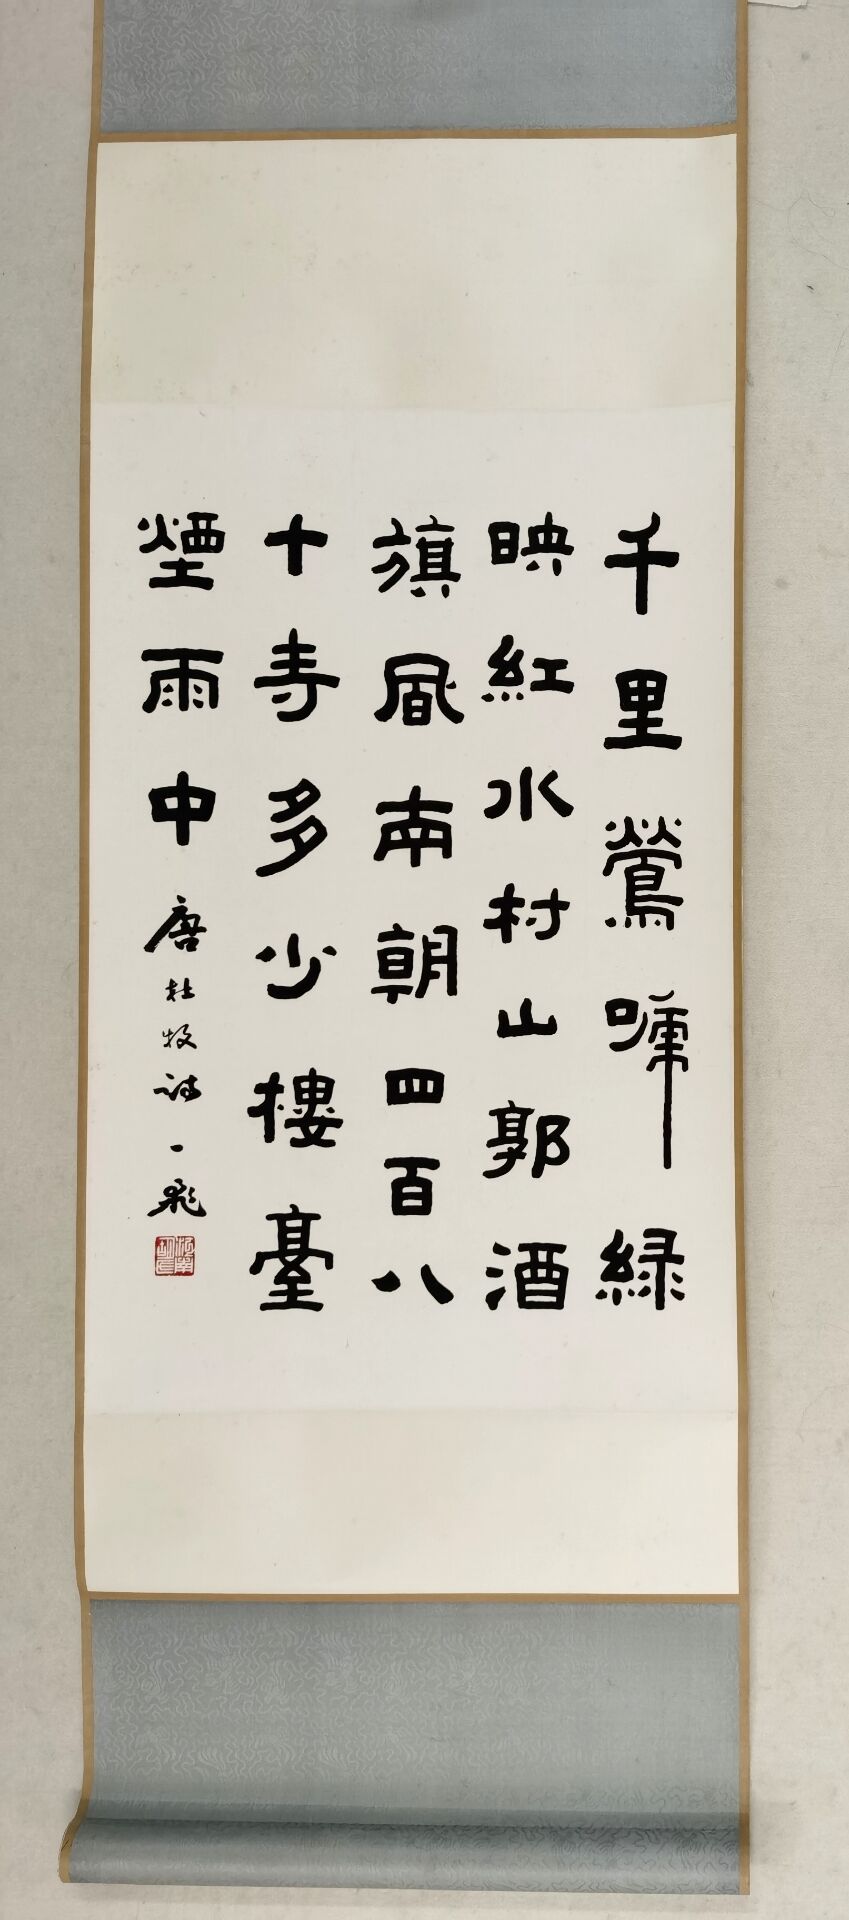 千里鶯啼緑
映紅水村山郭酒
旗風南朝四百八
十寺多少樓臺
煙雨中
唐杜牧詩一飛